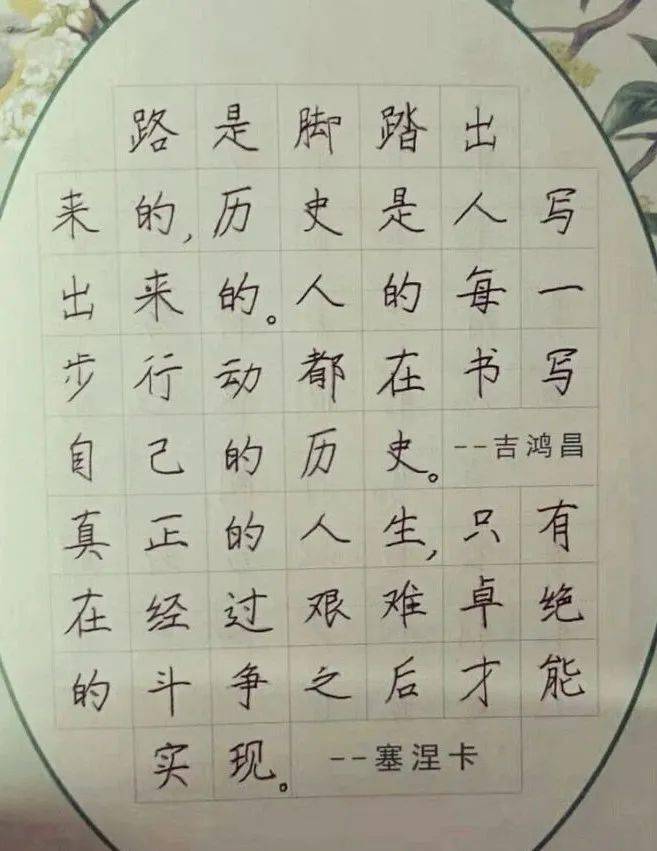 路是脚踏出
来的,历史是人写
出来的。人的每一
步行动都在书写
自己的历史。--吉鸿昌
真正的人生,只有
在经过艰难卓绝
的斗争之后才能
实现。--塞涅卡